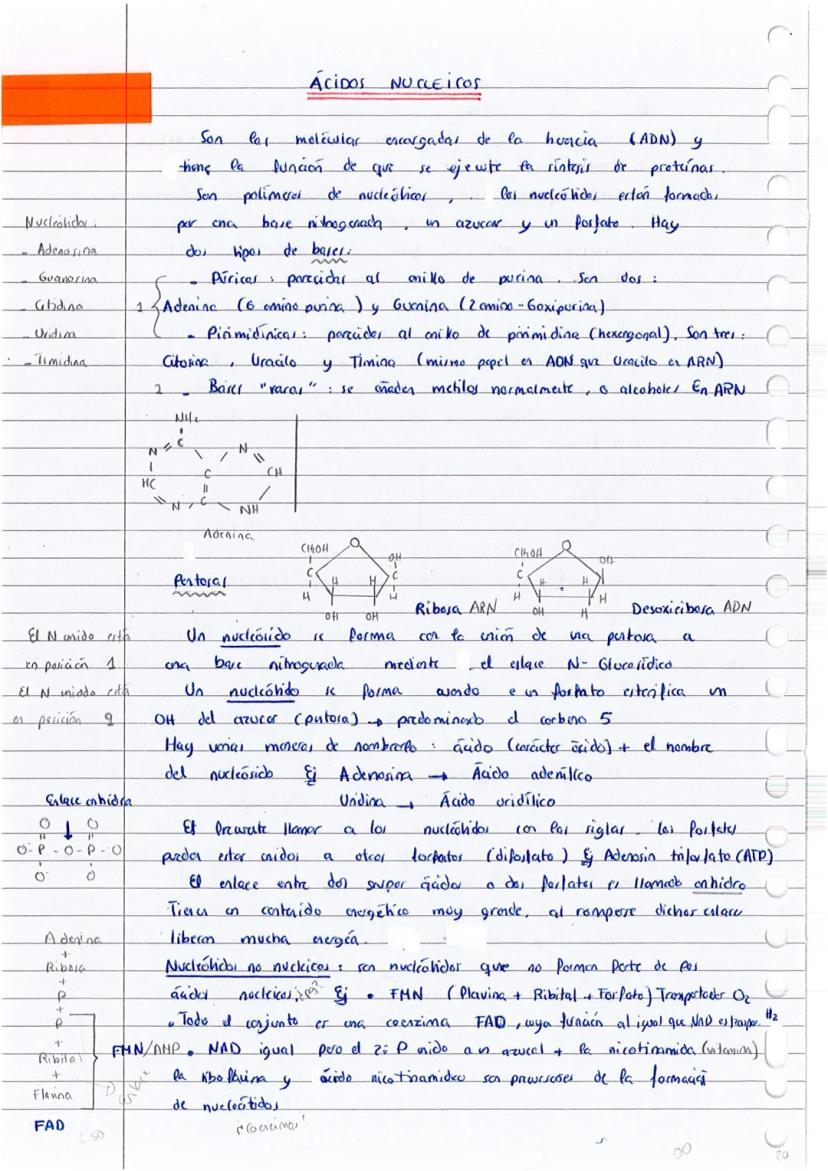 ÁCIDOS NUCLEICOS
Son las moléculas encargadas de la herencia (ADN) y
tiene la función de que se ejecute la síntesis de proteínas.
Son polímeros de nucleótidos, los nucleótidos están formados
por una base nitrogenada, un azucar y un fosfato. Hay
dos tipos de bases:
- Púricas: parecidas al anillo de purina. Son dos:
1 Adenina (6 amino purina) y Guanina (2 amino-6oxipurina)
- Pirimidínicas: parecidas al anillo de pirimidina (hexagonal). Son tres:
Citosina, Uracilo y Timina (mismo papel en ADN que Uracilo en ARN)
2 - Bases "raras": se añaden metilos normalmente, o alcoholes En ARN
Nucleósidos:
- Adenosina
- Guanosina
- Citidina
- Uridina
- Timidina
NH2
N C N
C CH
HC C
N NH
Adenina
Pentosas
CH2OH O OH
C C
H H H H
OH OH
Ribosa ARN
CH2OH O OH
C
H H H H
OH H
Desoxiribosa ADN
El N unido está
en posición 1
El N unido está
en posición 9
Un nucleósido se forma con la unión de una pentosa a
una base nitrogenada mediante el enlace N-Glucosídico
Un nucleótido se forma cuando un fosfato esterifica un
OH del azucar (pentosa) → predominando el carbono 5
Hay varias maneras de nombrarlo: ácido (carácter ácido) + el nombre
del nucleósido Ej Adenosina → Ácido adenílico
Uridina → Ácido uridílico
Es frecuente llamar a los nucleótidos con las siglas. Los fosfatos
pueden estar unidos a otros fosfatos (difosfato) Ej Adenosin trifosfato (ATP)
El enlace entre dos ácidos o dos fosfatos es llamado anhidro
Tienen un contenido energético muy grande, al romperse dichos enlaces
liberan mucha energía.
Enlace anhidro
O O
O-P-O-P-O
O O
Nucleótidos no nucleicos: son nucleótidos que no forman parte de los
ácidos nucleicos. Ej • FMN (Flavina + Ribital + Fosfato) Transportador O2
• Todo el conjunto es una coenzima FAD, cuya función al igual que NAD es transpor. H2
• NAD igual pero el 2º P unido a un azucar + la nicotinamida (vitamina)
la riboflavina y ácido nicotinamideo son precursores de la formación
de nucleótidos
¡coenzimas!
Adenina
+
Ribosa
+
P
+
P
+
Ribital
+
Flavina
FMN/AMP
FAD
20